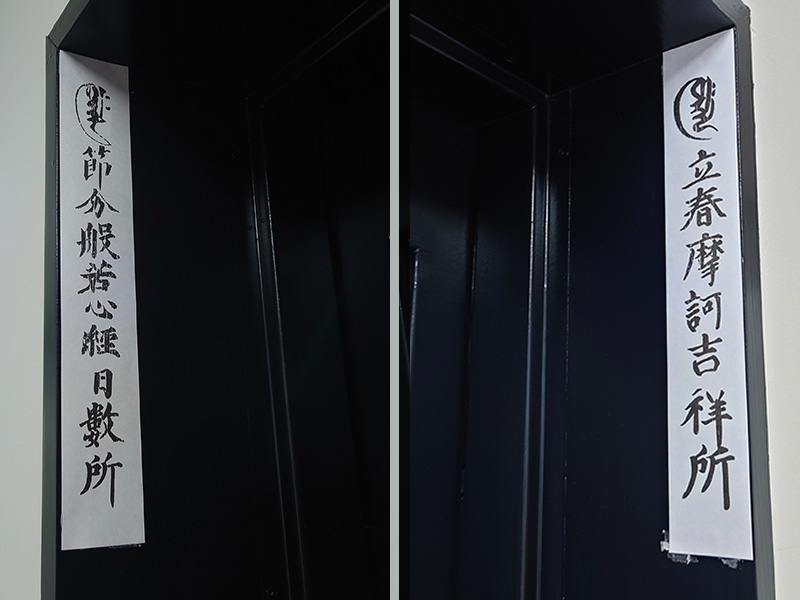 立春摩訶吉祥所
節分般若心經日數所